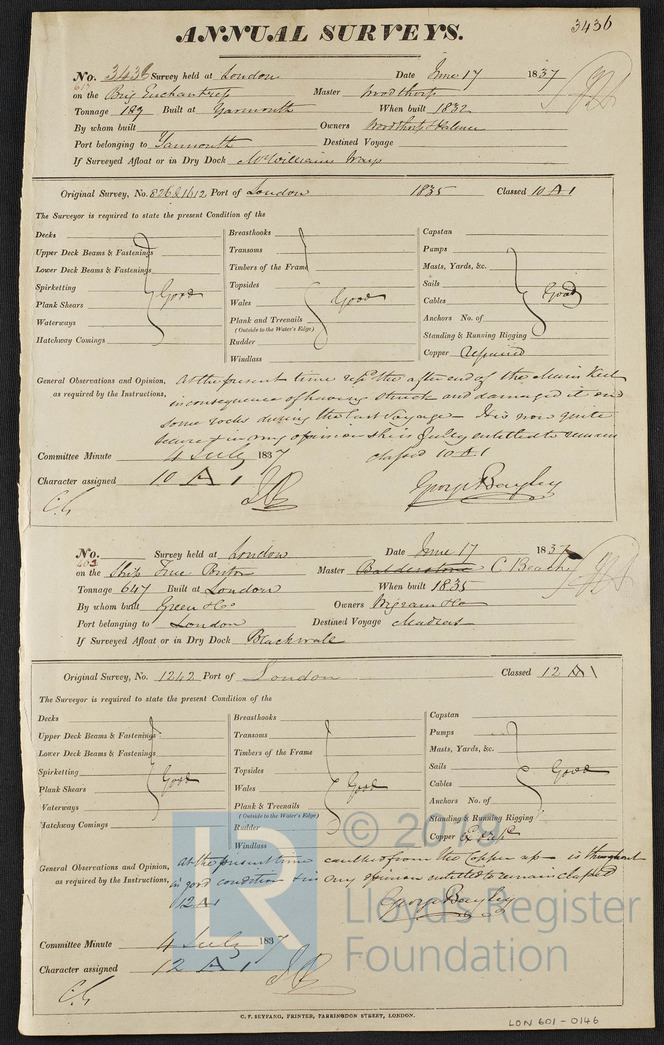 ANNUAL SURVEYS.
3436
No. 3436 Survey held at London Date June 17 1837
617
on the Brig Enchantress Master Woodthorp
Tonnage 189 Built at Yarmouth When built 1832
By whom built Owners Woodthorp &
Port belonging to Yarmouth Destined Voyage
If Surveyed Afloat or in Dry Dock McWilliams Ways
Original Survey, No. 826 & 1612 Port of London 1835 Classed 10 A 1
The Surveyor is required to state the present Condition of the
Decks
Upper Deck Beams & Fastenings
Lower Deck Beams & Fastenings
Spirketting
Plank Shears
Waterways
Hatchway Comings
Good
Breasthooks
Transoms
Timbers of the Frame
Topsides
Wales
Plank and Treenails
(Outside to the Water's Edge)
Rudder
Windlass
Good
Capstan
Pumps
Masts, Yards, &c.
Sails
Cables
Anchors No. of
Standing & Running Rigging
Copper repaired
Good
General Observations and Opinion, At the present time the after end of the Main Keel
as required by the Instructions, in consequence of having struck and damaged it on
some rocks during the last Voyage It is now quite
secure & in my opinion she is fully entitled to remain
Committee Minute 4 July 1837 classed 10 A 1
Character assigned 10 A 1
George Bayley
No. Survey held at London Date June 17 1837
203
on the Ship True Briton Master Balderstone C Beach
Tonnage 647 Built at London When built 1835
By whom built Green & Co Owners Wigram & Co
Port belonging to London Destined Voyage Madras
If Surveyed Afloat or in Dry Dock Blackwall
Original Survey, No. 1242 Port of London Classed 12 A 1
The Surveyor is required to state the present Condition of the
Decks
Upper Deck Beams & Fastenings
Lower Deck Beams & Fastenings
Spirketting
Plank Shears
Waterways
Hatchway Comings
Good
Breasthooks
Transoms
Timbers of the Frame
Topsides
Wales
Plank & Treenails
(Outside to the Water's Edge)
Rudder
Windlass
Good
Capstan
Pumps
Masts, Yards, &c.
Sails
Cables
Anchors No. of
Standing & Running Rigging
Copper
Good
General Observations and Opinion, At the present time caulked from the Copper up is throughout
as required by the Instructions, in good condition & in my opinion entitled to remain classed
12 A 1
George Bayley
Committee Minute 4 July 1837
Character assigned 12 A 1
C. F. SEYFANG, PRINTER, FARRINGDON STREET, LONDON.
LON 601-0146
LR
© 2019
Lloyd's Register
Foundation